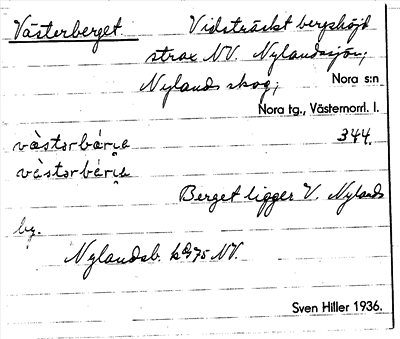 Västerberget. Vidsträckt bergshöjd
strax NV. Nylandssjön;
Nylands skog; Nora s:n
Nora tg., Västernorrl. l.
västərbárjə 344.
västərbérjə
Berget ligger V. Nylands
by.
Nylandsb. 75 NV.
Sven Hiller 1936.